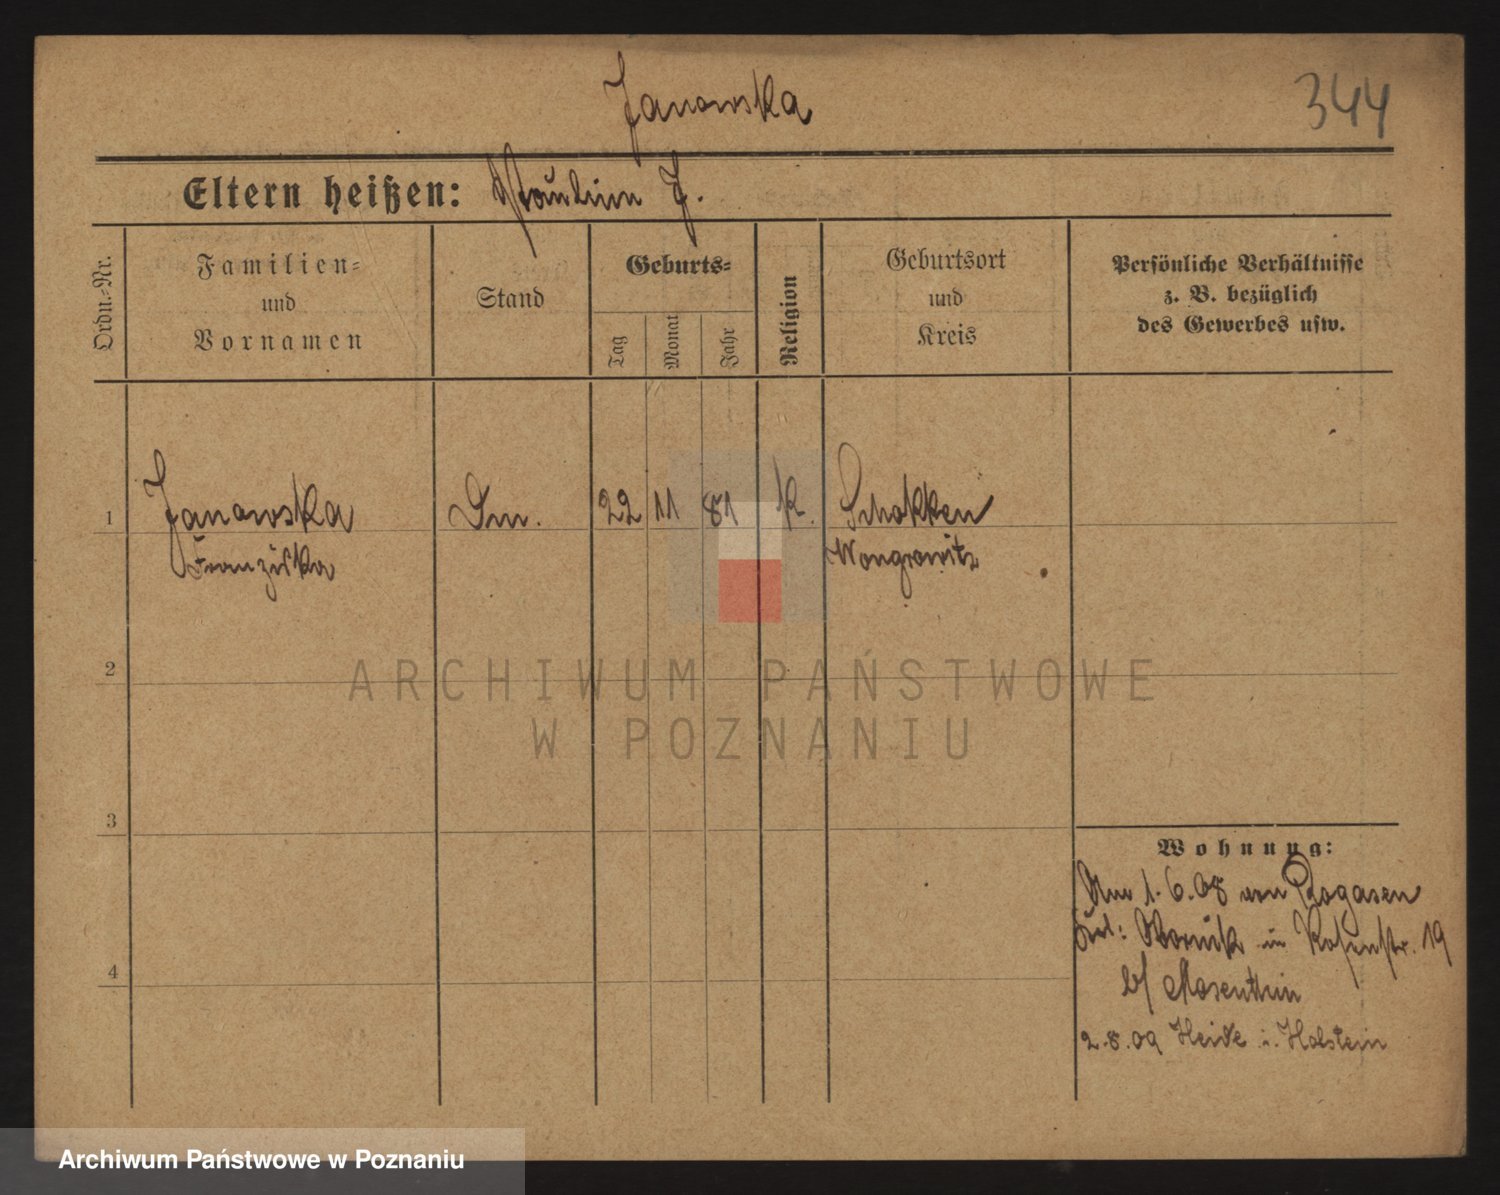 Janowska
344
Eltern heißen: J.
Ordn.-Nr.
Familien-
und
Vornamen
Stand
Geburts-
Tag
Monat
Jahr
Religion
Geburtsort
und
Kreis
Persönliche Verhältnisse
z. B. bezüglich
des Gewerbes usw.
1 Janowska 22 11 81 K. Schokken
Franziska Wongrowitz
2
3
4
Wohnung:
1.6.08 von Rogasen
in 19
b/
2.8.09 Heide i. Holstein
ARCHIWUM PAŃSTWOWE
W POZNANIU
Archiwum Państwowe w Poznaniu